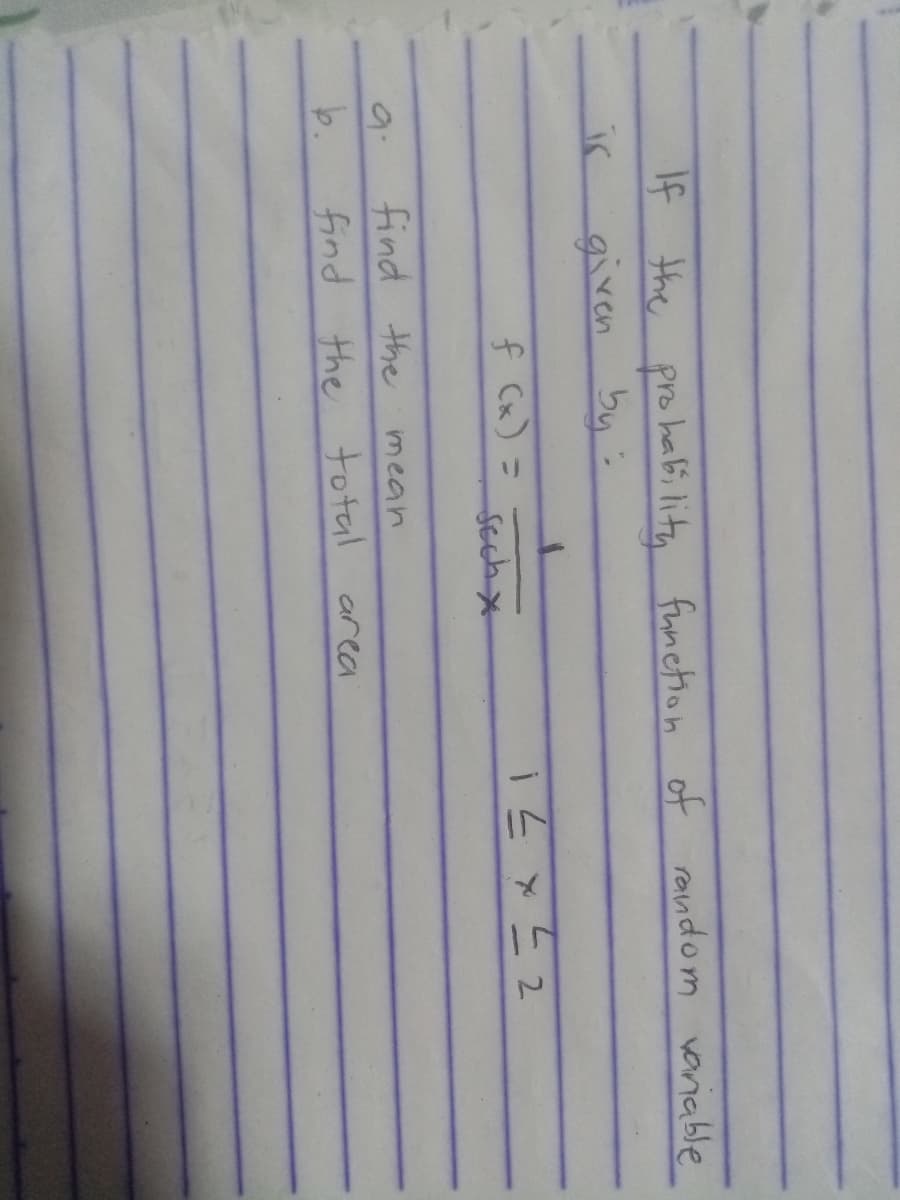 If the probability function of random variable
is given by:
f(x) = 1/sech x 1 ≤ x ≤ 2
a. find the mean
b. find the total area